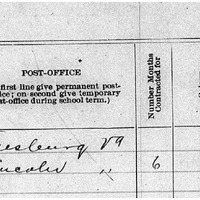 POST-OFFICE
first line give permanent post-
ice; on second give temporary
st-office during school term.)
Number Months
Contracted for
esburg Va
incoln " 6